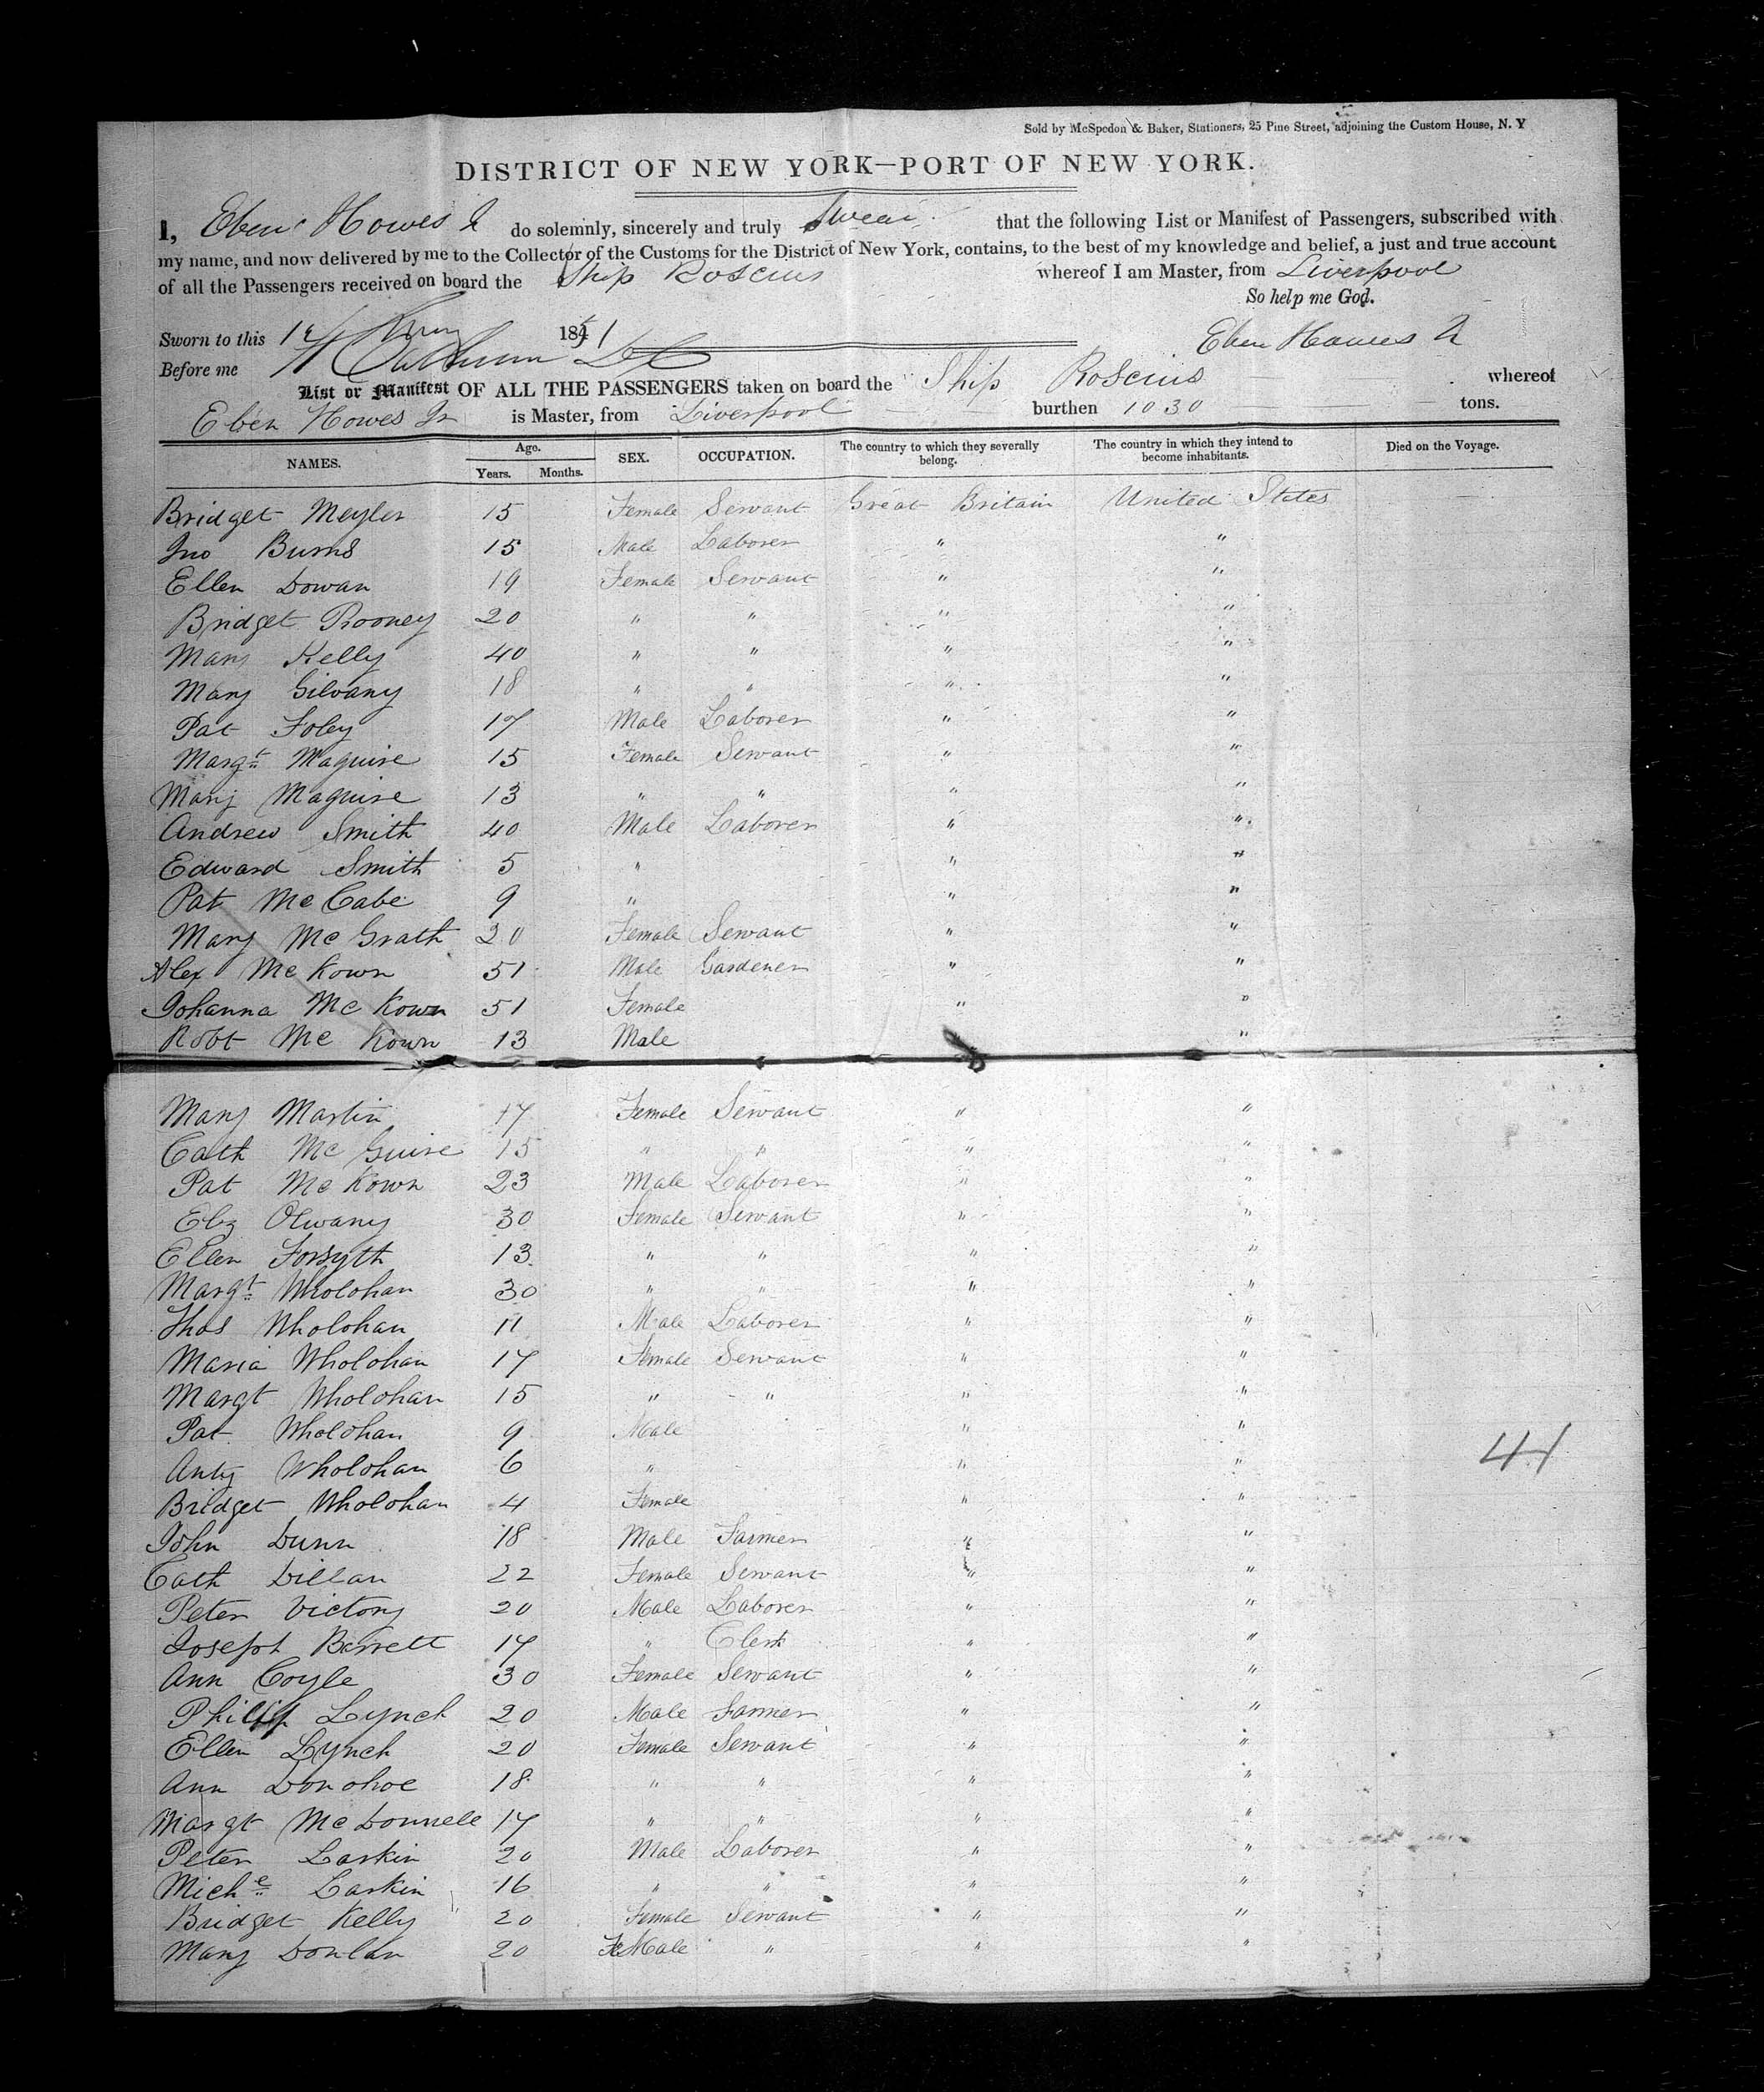 Sold by McSpedon & Baker, Stationers, 25 Pine Street, adjoining the Custom House, N. Y
DISTRICT OF NEW YORK—PORT OF NEW YORK.
I, Eben Howes Jr do solemnly, sincerely and truly swear that the following List or Manifest of Passengers, subscribed with
my name, and now delivered by me to the Collector of the Customs for the District of New York, contains, to the best of my knowledge and belief, a just and true account
of all the Passengers received on board the Ship Roscius whereof I am Master, from Liverpool
So help me God.
Sworn to this 1851
Eben Howes Jr
Before me
List or Manifest OF ALL THE PASSENGERS taken on board the Ship Roscius whereof
Eben Howes Jr is Master, from Liverpool burthen 1030 tons.
NAMES. Age. Years. Months. SEX. OCCUPATION. The country to which they severally belong. The country in which they intend to become inhabitants. Died on the Voyage.
Bridget Meyler 15 Female Servant Great Britain United States
Jno Burns 15 Male Laborer " "
Ellen Dowan 19 Female Servant " "
Bridget Rooney 20 " " " "
Mary Kelly 40 " " " "
Mary Gilvany 18 " " " "
Pat Foley 17 Male Laborer " "
Margt Maguire 15 Female Servant " "
Mary Maguire 13 " " " "
Andrew Smith 40 Male Laborer " "
Edward Smith 5 " " "
Pat McCabe 9 " " "
Mary McGrath 20 Female Servant " "
Alex McKown 51 Male Gardener " "
Johanna McKown 51 Female " "
Robt McKown 13 Male "
Mary Martin 17 Female Servant " "
Cath McGuire 15 " " " "
Pat McKown 23 Male Laborer " "
Elz Olwany 30 Female Servant " "
Ellen Forsyth 13 " " " "
Margt Wholohan 30 " " " "
Thos Wholohan 11 Male Laborer " "
Maria Wholohan 17 Female Servant " "
Margt Wholohan 15 " " " "
Pat Wholohan 9 Male " "
Anty Wholohan 6 " " "
41
Bridget Wholohan 4 Female " "
John Dunn 18 Male Farmer " "
Cath Dillan 22 Female Servant " "
Peter Victory 20 Male Laborer " "
Joseph Barrett 17 " Clerk " "
Ann Coyle 30 Female Servant " "
Philip Lynch 20 Male Farmer " "
Ellen Lynch 20 Female Servant " "
Ann Donohoe 18 " " " "
Margt McDonnell 17 " " " "
Peter Larkin 20 Male Laborer " "
Michl Larkin 16 " " " "
Bridget Kelly 20 Female Servant " "
Mary Donlan 20 FeMale " " "